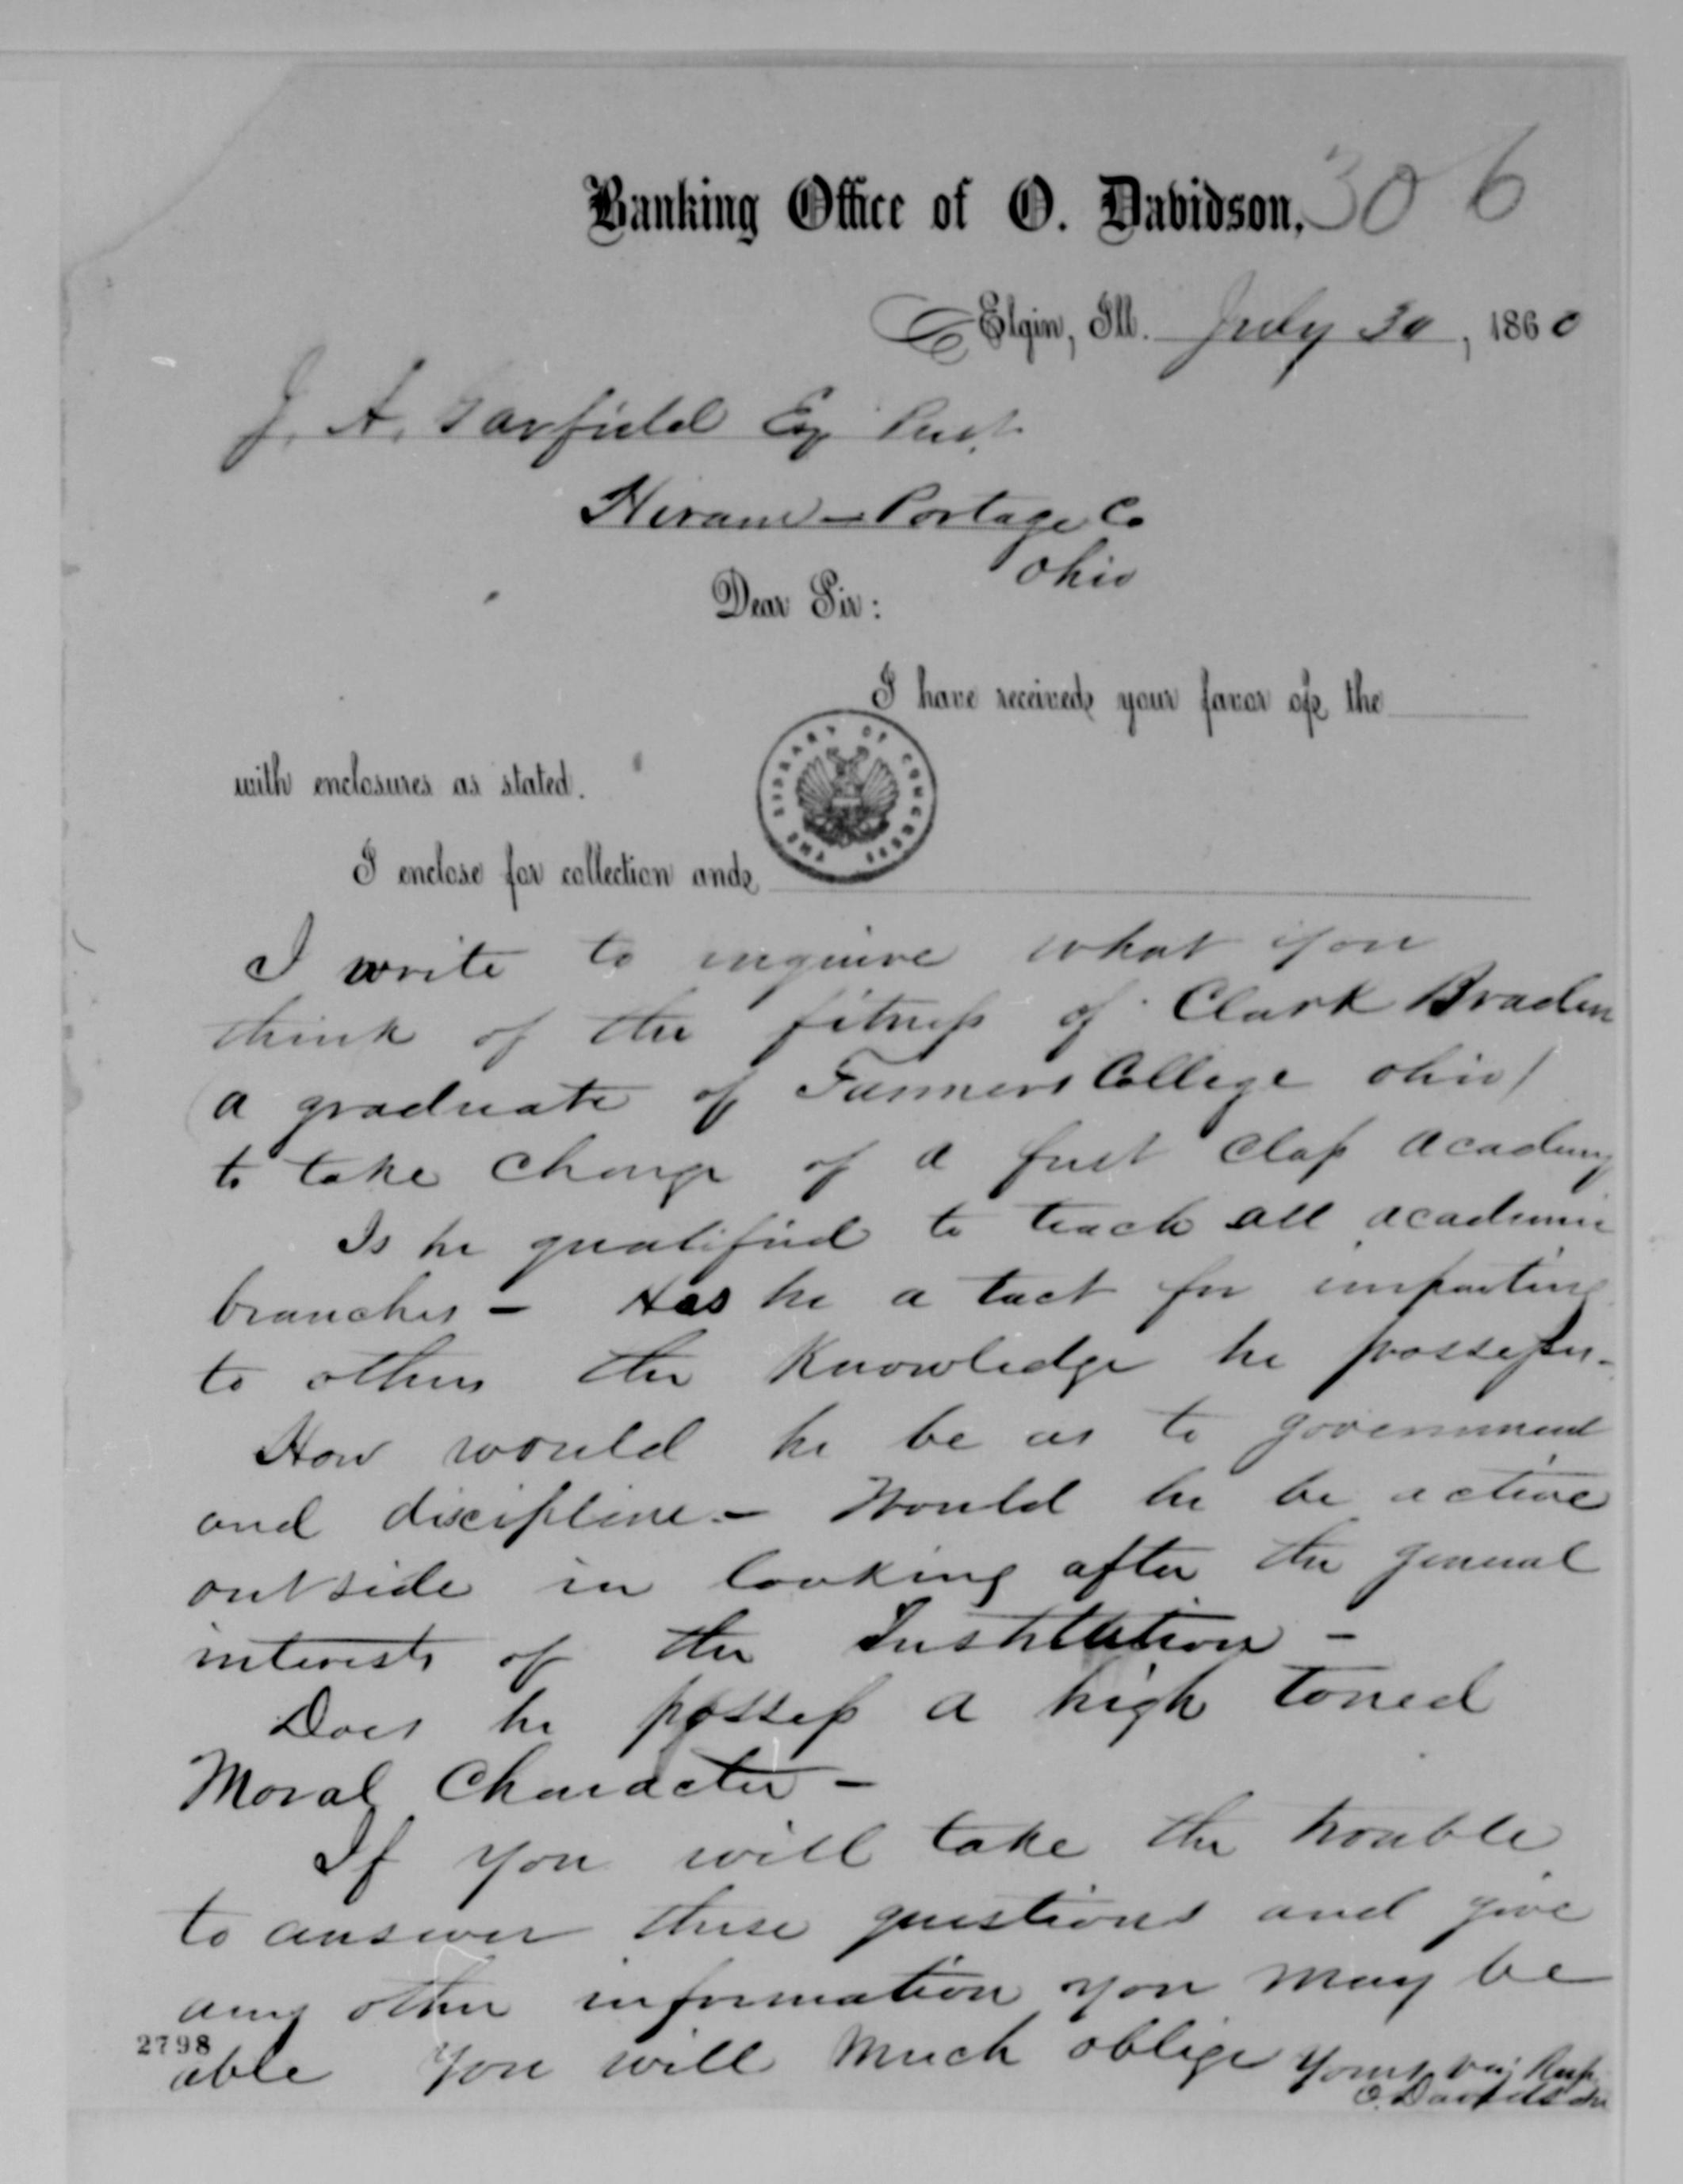 306
Banking Office of O. Davidson,
Elgin, Ill. July 30, 1860
J. A. Garfield Esq Prest.
Hiram - Portage Co
Ohio
Dear Sir:
I have received your favor of the
with enclosures as stated.
THE LIBRARY OF CONGRESS
I enclose for collection and
I write to inquire what you
think of the fitness of Clark Braden
(a graduate of Farmers College Ohio)
to take charge of a first class academy
Is he qualified to teach all academic
branches - Has he a tact for imparting
to others the Knowledge he possesses -
How would he be as to government
and discipline - Would he be active
outside in looking after the general
interests of the Institution -
Does he possess a high toned
Moral Character -
If you will take the trouble
to answer these questions and give
any other information you may be
2798
able you will much oblige Yours very Resp.
O. Davidson